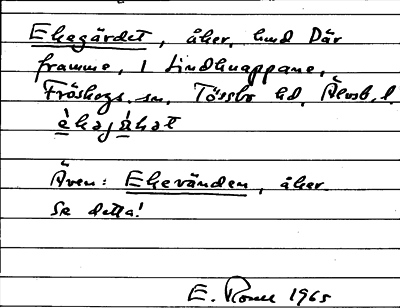 Ekegärdet, åker, hmd Där
framme, 1 Lindknappane,
Fröskogs sn, Tössbo hd, Älvsb. l.
èkəjáḷət
Även: Ekevänden, åker.
Se detta!
E. 1965